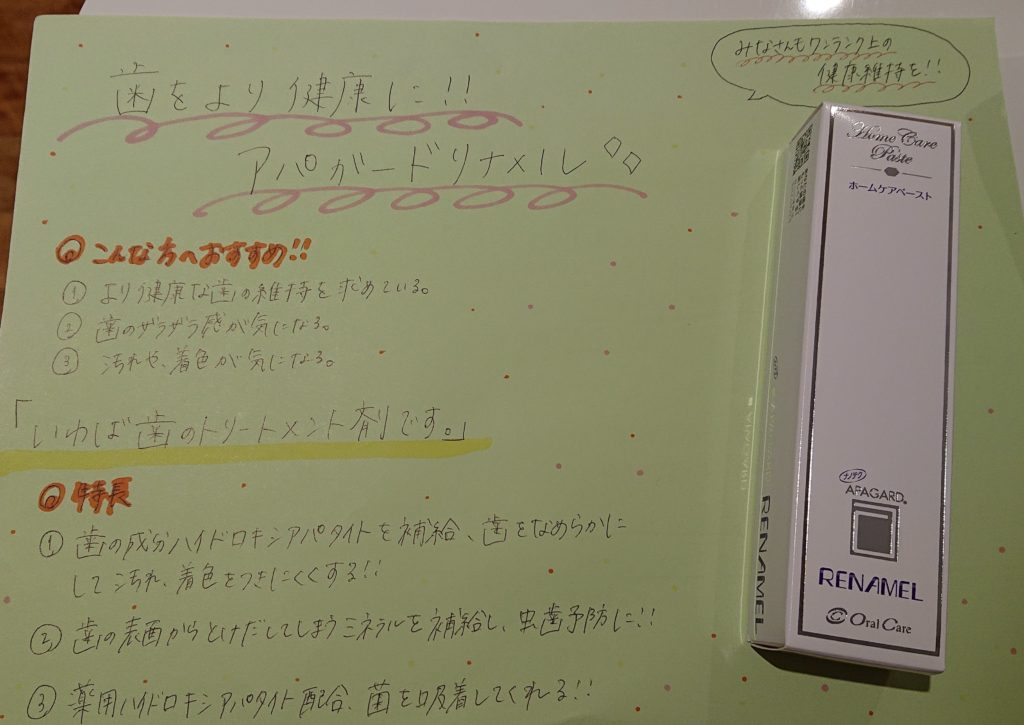 歯をより健康に!!
みなさんもワンランク上の
健康維持を!!
アパガードリナメル
こんな方へおすすめ!!
① より健康な歯の維持を求めている。
② 歯のザラザラ感が気になる。
③ 汚れや、着色が気になる。
「いわば歯のトリートメント剤です。」
特長
① 歯の成分ハイドロキシアパタイトを補給、歯をなめらかに
して汚れ、着色をつきにくくする!!
② 歯の表面からとけだしてしまうミネラルを補給し、虫歯予防に!!
③ 薬用ハイドロキシアパタイト配合、菌を吸着してくれる!!
Home Care
Paste
ホームケアペースト
ナノテク
APAGARD®
RENAMEL
Oral Care
RENAMEL